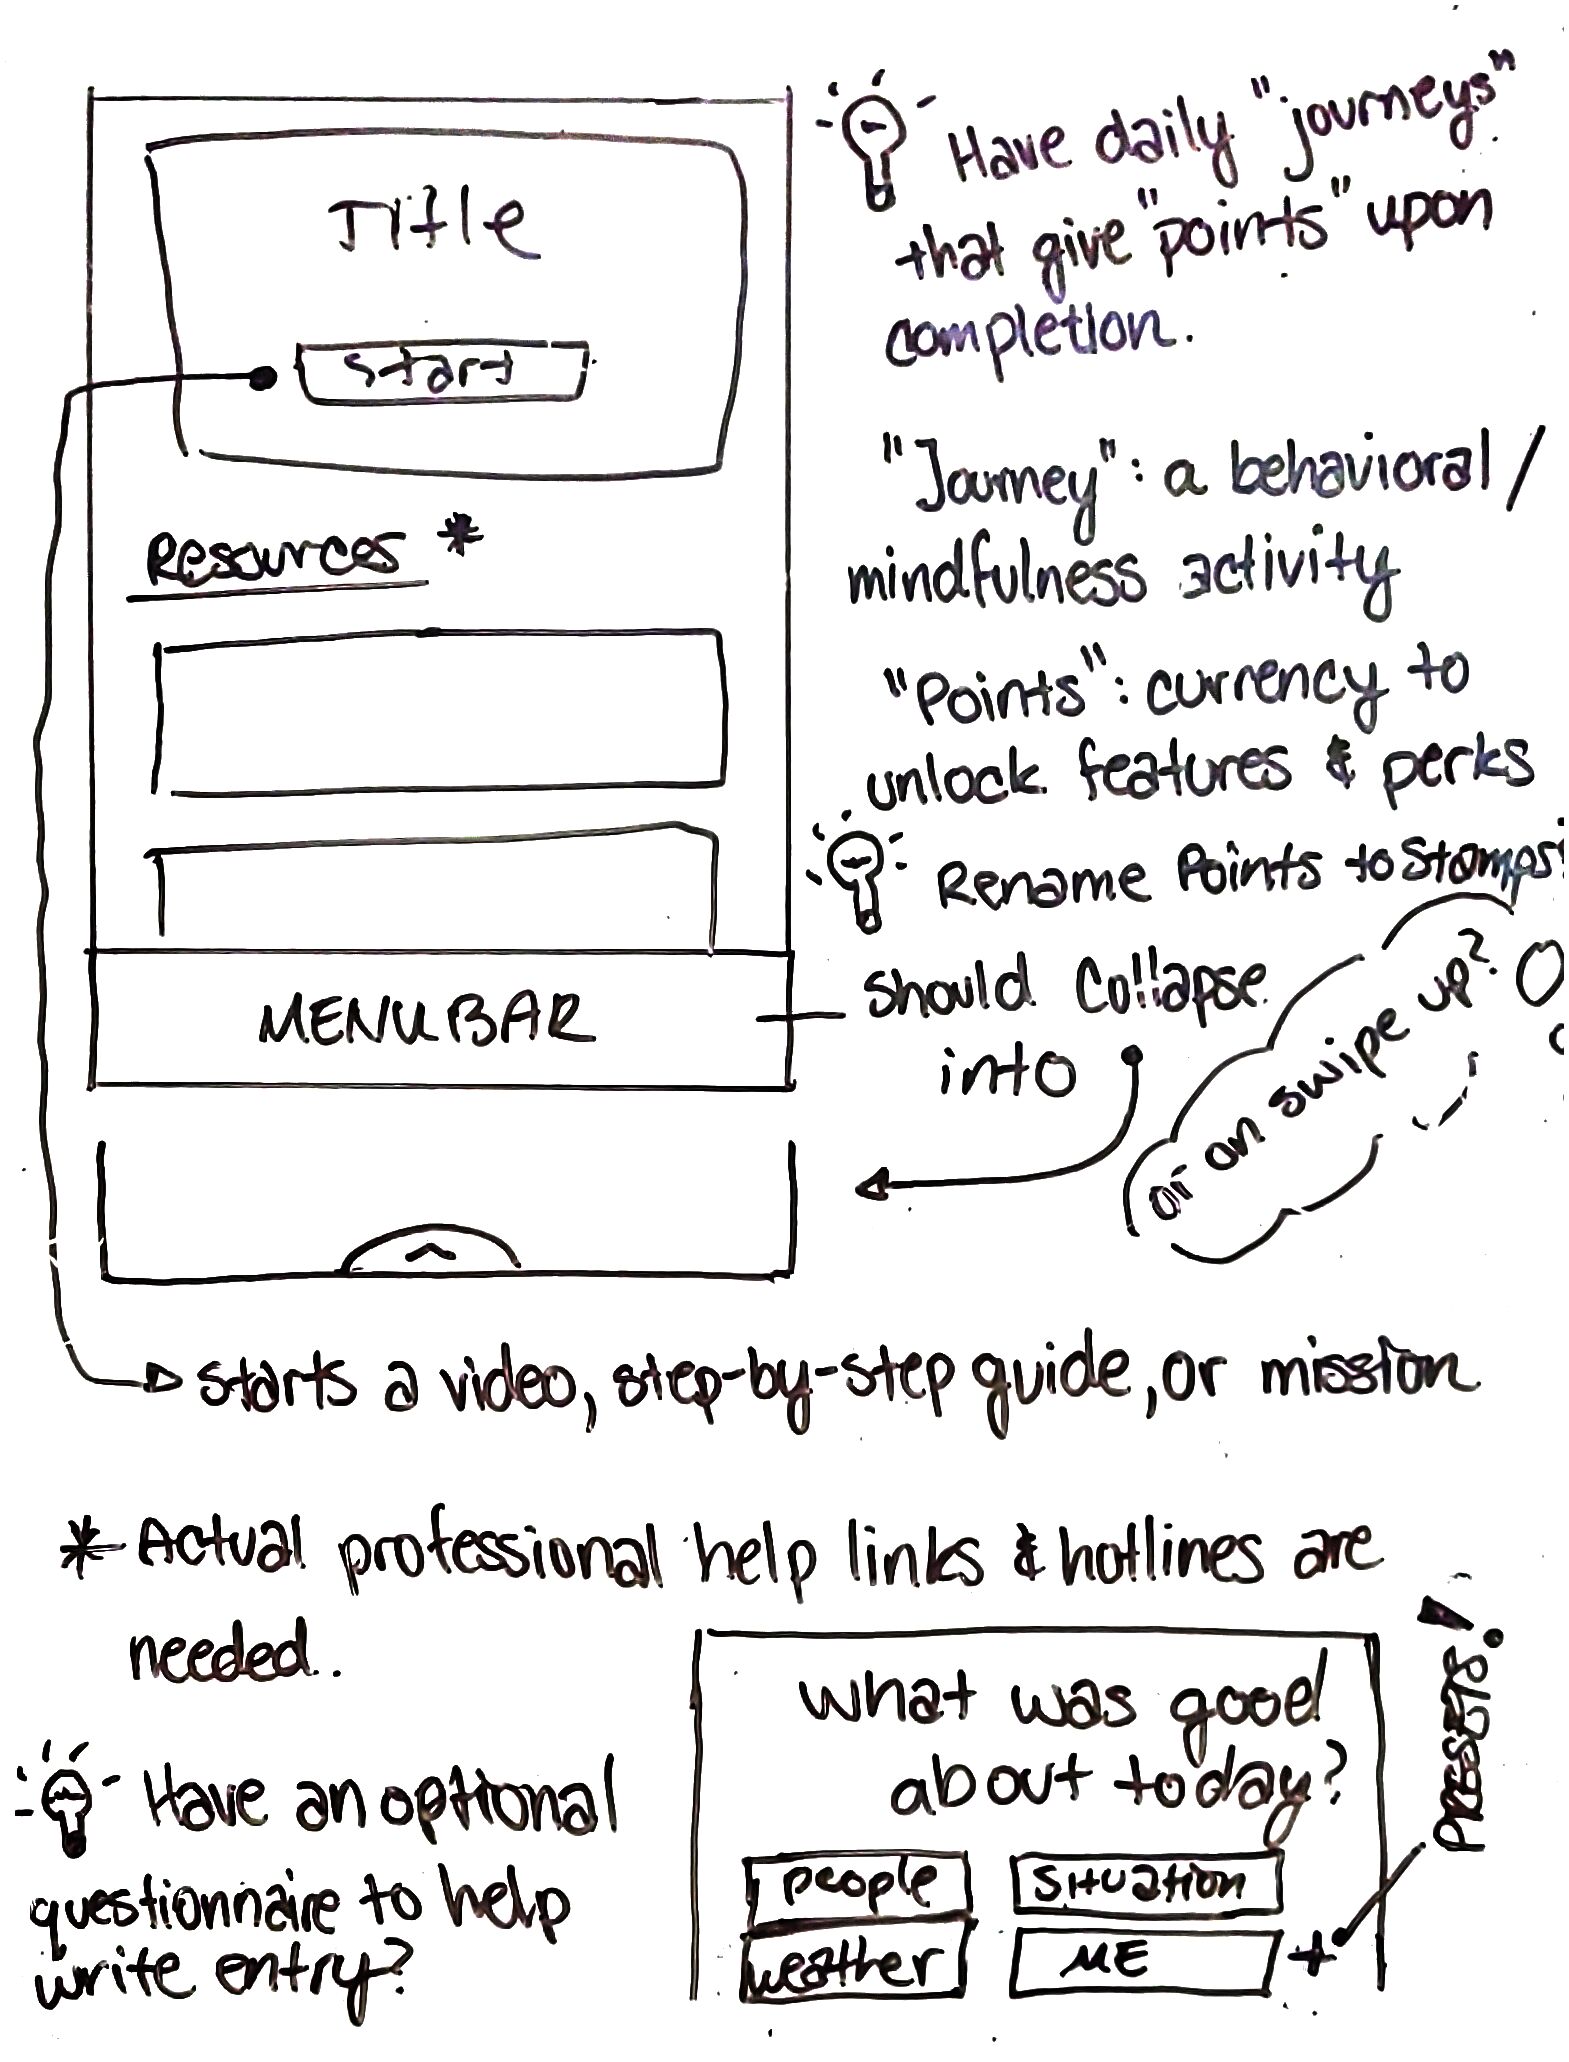 Title
Start
Resources *
MENU BAR
Have daily "journeys"
that give "points" upon
completion.
"Journey": a behavioral/
mindfulness activity
"Points": currency to
unlock features & perks
Rename Points to Stamps!
should collapse
into
or on swipe up?
starts a video, step-by-step guide, or mission
* Actual professional help links & hotlines are
needed.
Have an optional
questionnaire to help
write entry?
What was good
about today?
people
situation
weather
ME
+
PRESETS!